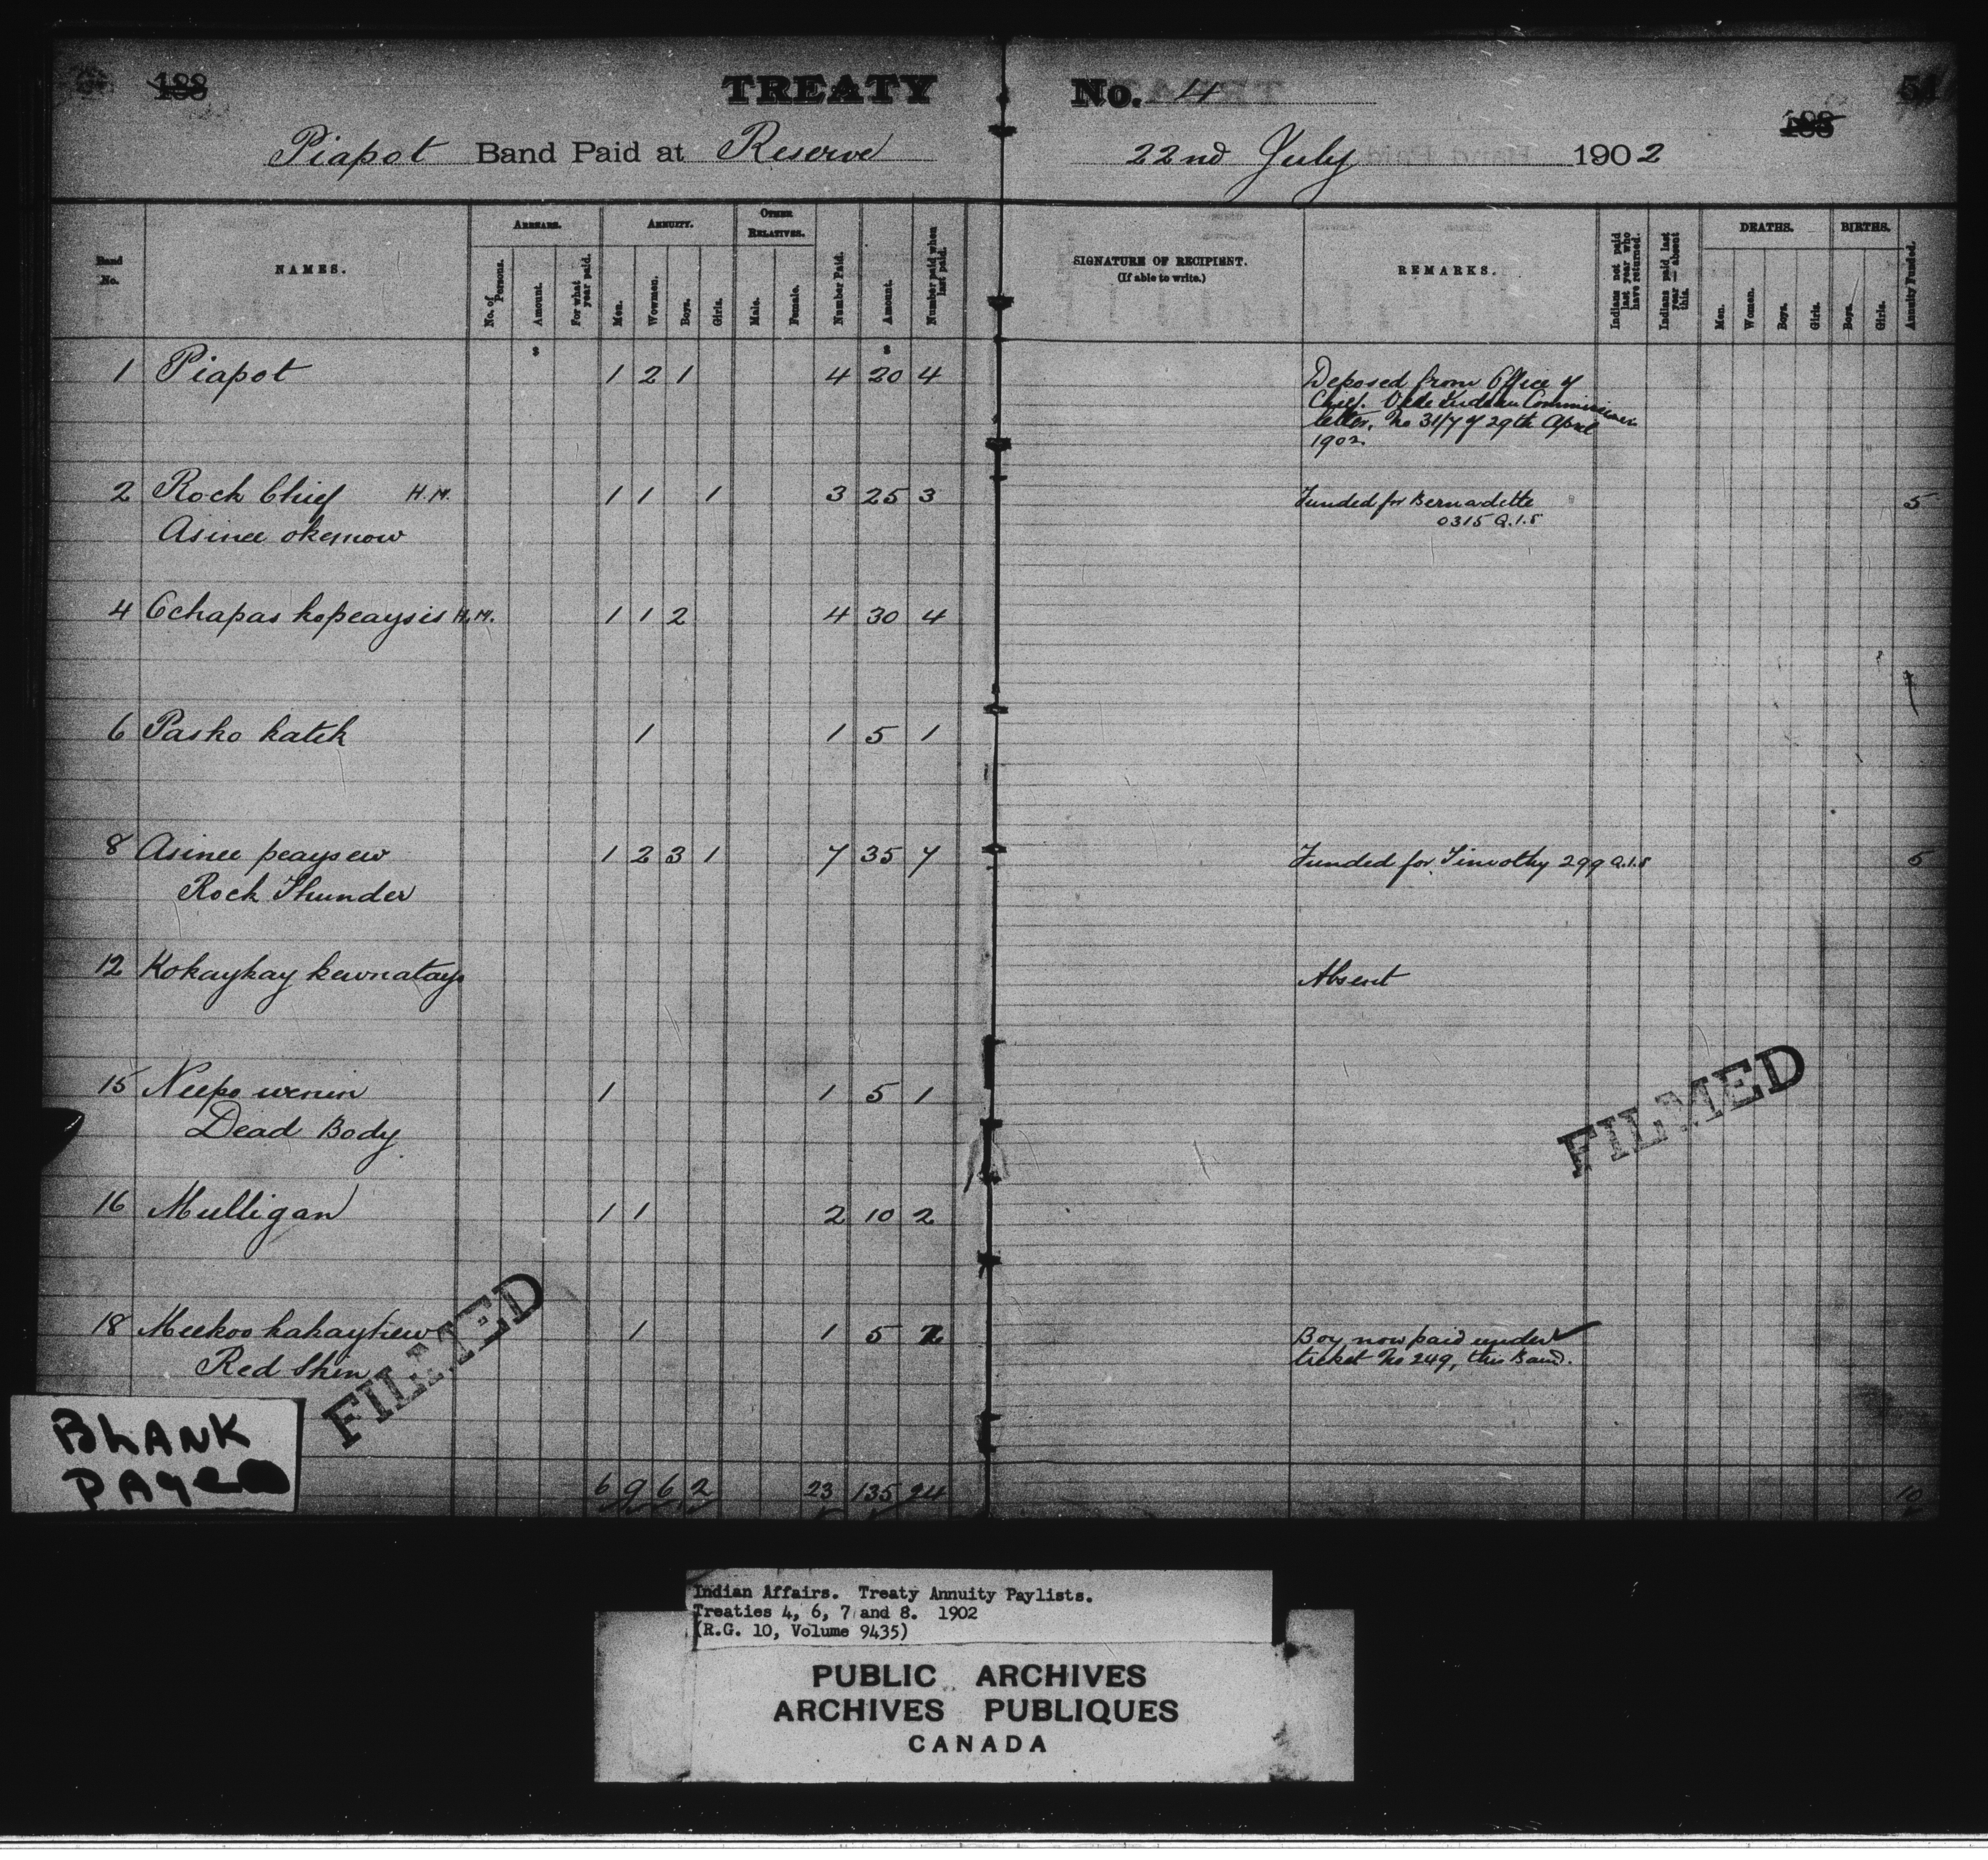 188 TREATY No. 4 54
188
Piapot Band Paid at Reserve 22nd July 1902
Band No.
NAMES.
ARREARS.
No. of Persons.
Amount.
For what year paid.
ANNUITY.
Men.
Wowmen.
Boys.
Girls.
OTHER RELATIVES.
Male.
Female.
Number Paid.
Amount.
Number paid when last paid.
SIGNATURE OF RECIPIENT.
(If able to write.)
REMARKS.
Indians not paid last year who have returned.
Indians paid last year — absent this.
DEATHS.
Men.
Women.
Boys.
Girls.
BIRTHS.
Boys.
Girls.
Annuity Funded.
$ $
1 Piapot 1 2 1 4 20 4 Deposed from Office of
Chief. Vide Indian Commissioner
letter, No 31/7 of 29th April
1902.
2 Rock Chief H.M. 1 1 1 3 25 3 Funded for Bernadette 5
Asinee okemow 0315 Q.I.S
4 Cchapas kopeaysis H.M. 1 1 2 4 30 4
6 Pasko katek 1 1 5 1
8 Asinee peaysew 1 2 3 1 7 35 7 Funded for Timothy 299 Q.I.S 5
Rock Thunder
12 Kokaykay kewnatay Absent
15 Neepo wenin 1 1 5 1
Dead Body
16 Mulligan 1 1 2 10 2
18 Meekoo kakaykew 1 1 5 2 Boy now paid under
Red Skin ticket No 249, this Band.
6 9 6 2 23 135 24 10
FILMED
FILMED
BLANK
PAGE
Indian Affairs. Treaty Annuity Paylists.
Treaties 4, 6, 7 and 8. 1902
(R.G. 10, Volume 9435)
PUBLIC ARCHIVES
ARCHIVES PUBLIQUES
CANADA